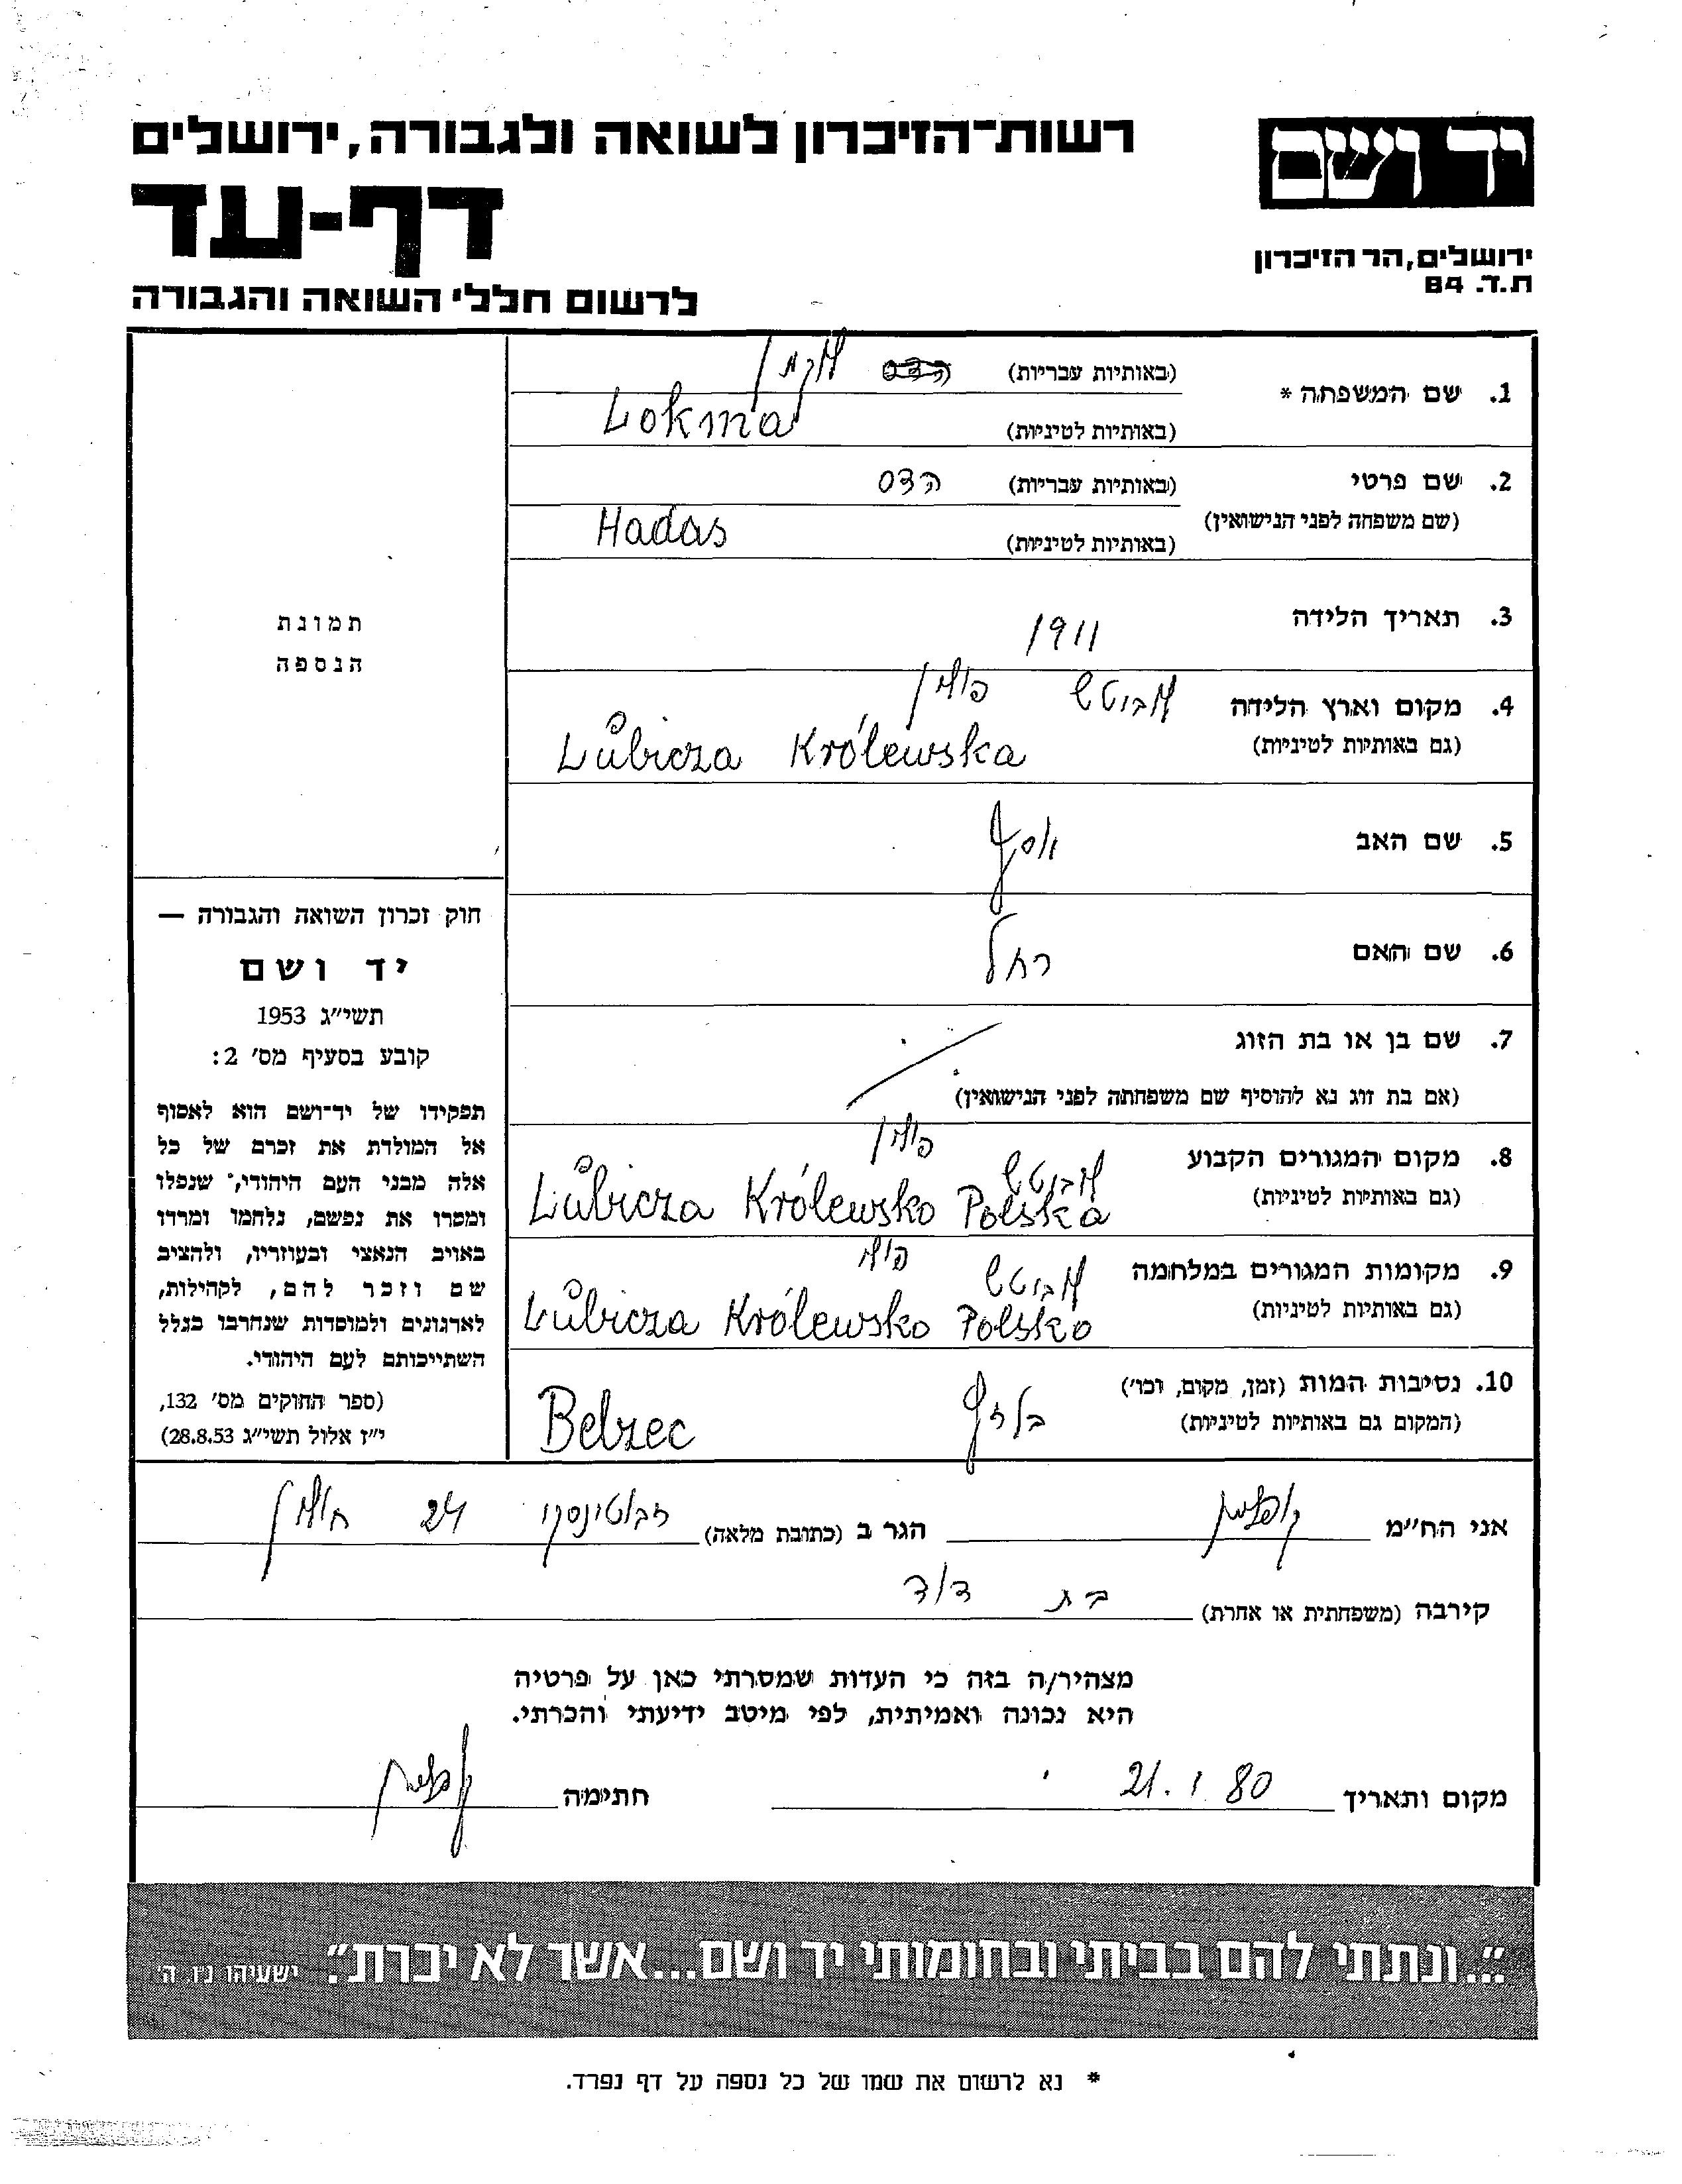 רשות־הזיכרון לשואה ולגבורה, ירושלים
יד ושם
דף-עד
ירושלים, הר הזיכרון
ת.ד. 84
לרשום חללי השואה והגבורה
1. שם המשפחה * (באותיות עבריות) לוקמן
(באותיות לטיניות) Lokma
2. שם פרטי (באותיות עבריות) הדס
(שם משפחה לפני הנישואין)
(באותיות לטיניות) Hadas
3. תאריך הלידה 1911
4. מקום וארץ הלידה פולין
(גם באותיות לטיניות) Lubicza Królewska
5. שם האב יוסף
6. שם האם רחל
7. שם בן או בת הזוג
(אם בת זוג נא להוסיף שם משפחתה לפני הנישואין)
8. מקום המגורים הקבוע פולין
(גם באותיות לטיניות) Lubicza Królewsko Polska
9. מקומות המגורים במלחמה
(גם באותיות לטיניות) Lubicza Królewsko Polsko
10. נסיבות המות (זמן, מקום, וכו')
(המקום גם באותיות לטיניות) Belzec
תמונת
הנספה
חוק זכרון השואה והגבורה —
יד ושם
תשי״ג 1953
קובע בסעיף מס' 2:
תפקידו של יד־ושם הוא לאסוף
אל המולדת את זכרם של כל
אלה מבני העם היהודי, שנפלו
ומסרו את נפשם, נלחמו ומרדו
באויב הנאצי ובעוזריו, ולהציב
שם וזכר להם, לקהילות,
לארגונים ולמוסדות שנחרבו בגלל
השתייכותם לעם היהודי.
(ספר החוקים מס' 132,
י״ז אלול תשי״ג 28.8.53)
אני הח״מ הגר ב (כתובת מלאה) ז׳בוטינסקי 24 חולון
קירבה (משפחתית או אחרת) בת דוד
מצהיר/ה בזה כי העדות שמסרתי כאן על פרטיה
היא נכונה ואמיתית, לפי מיטב ידיעתי והכרתי.
מקום ותאריך 21.1.80 חתימה
״...ונתתי להם בביתי ובחומותי יד ושם...אשר לא יכרת״. ישעיהו נ״ו ה׳
* נא לרשום את שמו של כל נספה על דף נפרד.